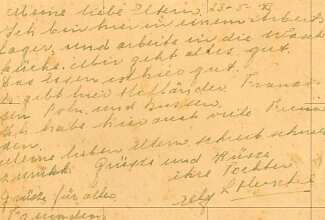 Meine liebe Eltern, 23-5-43
Ich bin hier in einem Arbeits
lager, und arbeite in die Wasch
küche. Mir geht alles gut.
Das Essen ist hier gut.
gibt hier Holländer Franzo
sen Poln. und Russen.
Ich habe hier auch viele Freun
den.
Meine lieben altern, schreibt schnel
zurükk. Grüsse und Küsse
ihre Tochter
Grüsse für alle
Freunden